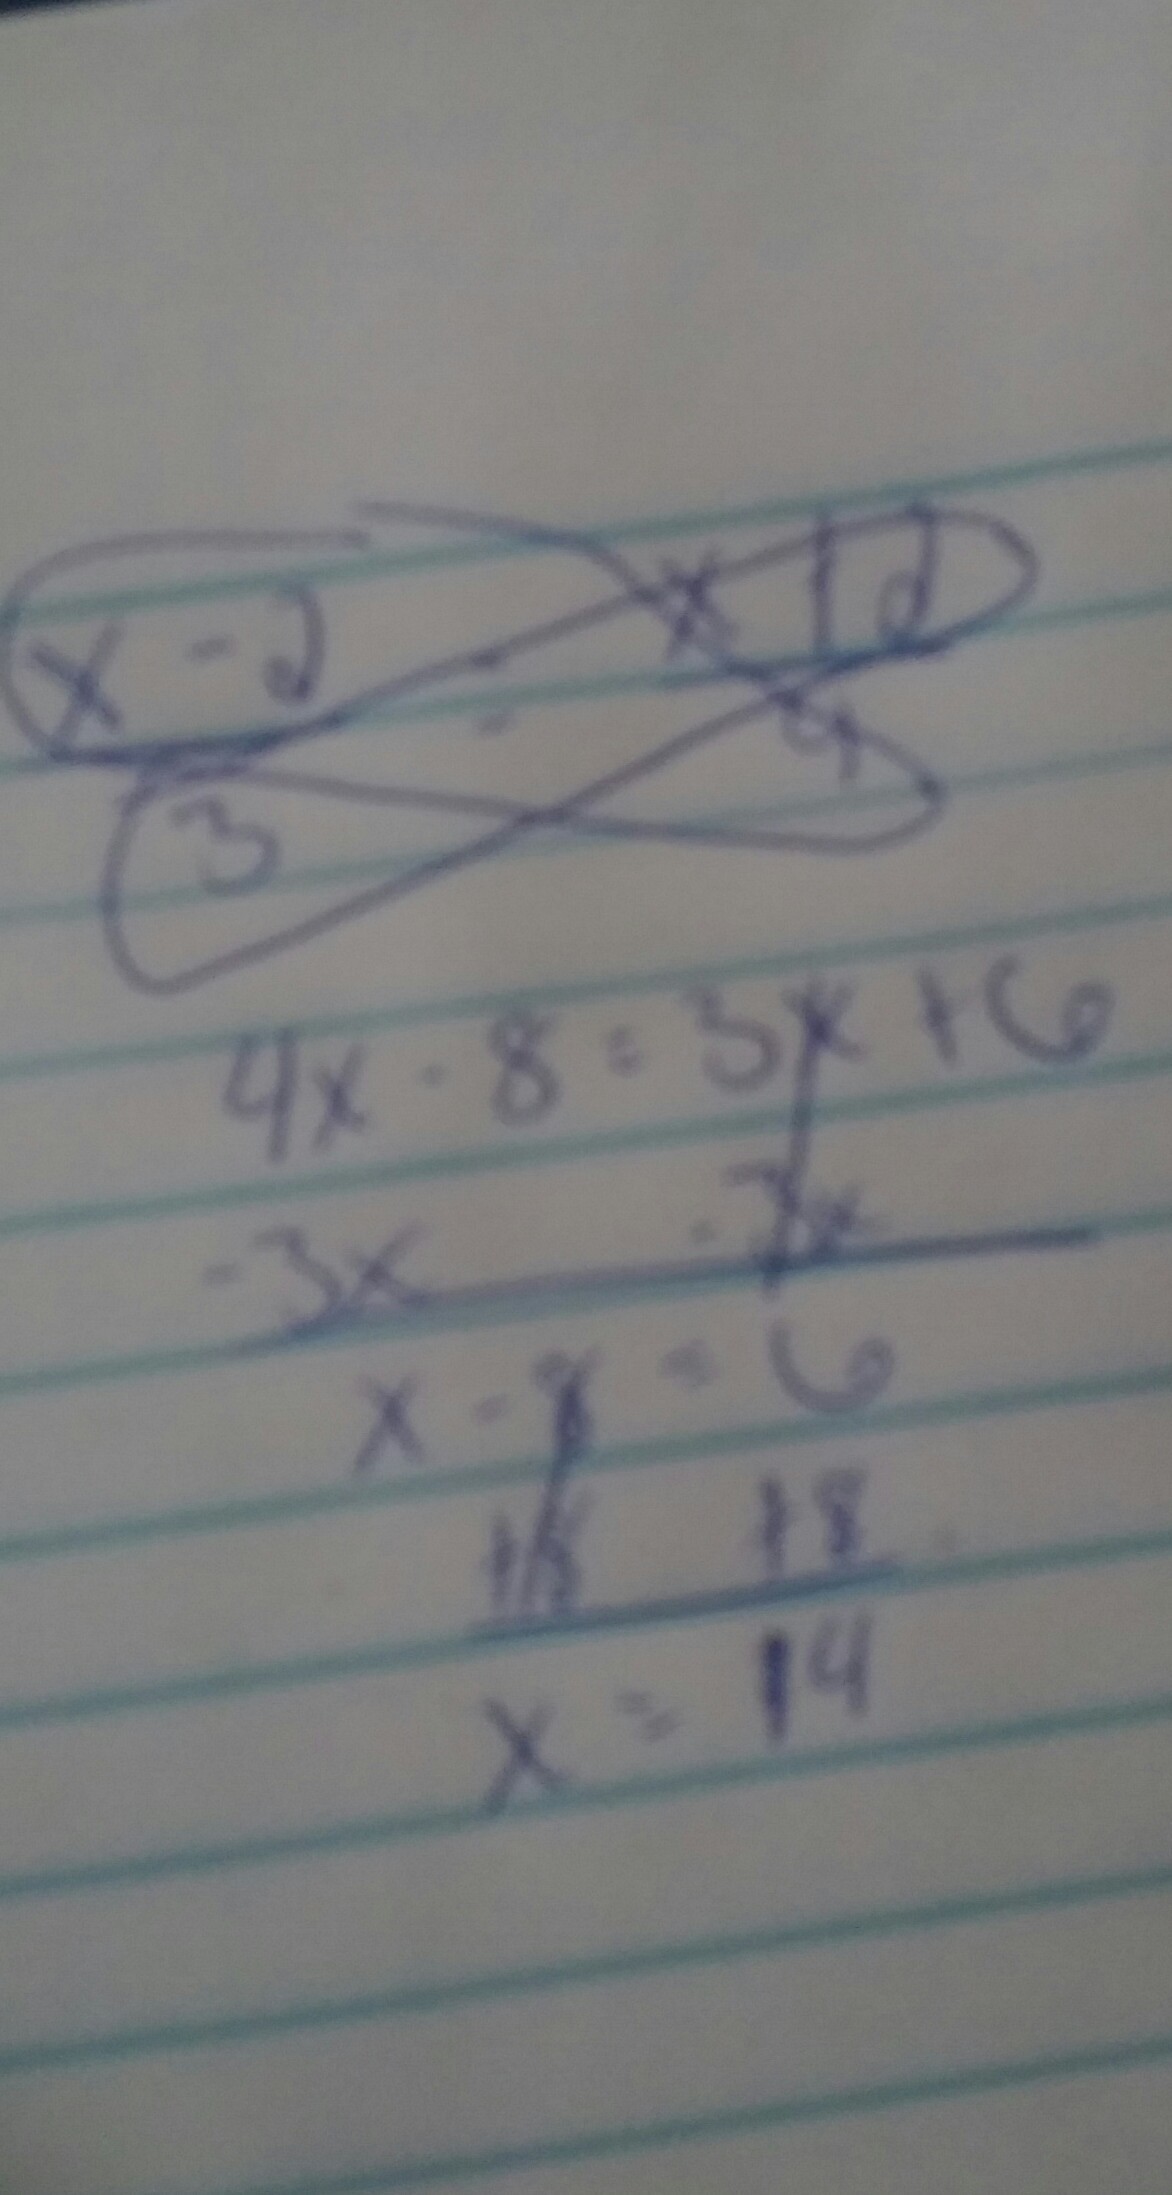 x - 2 = x + 2
3 4
4x - 8 = 3x + 6
-3x -3x
x - 8 = 6
+8 +8
x = 14